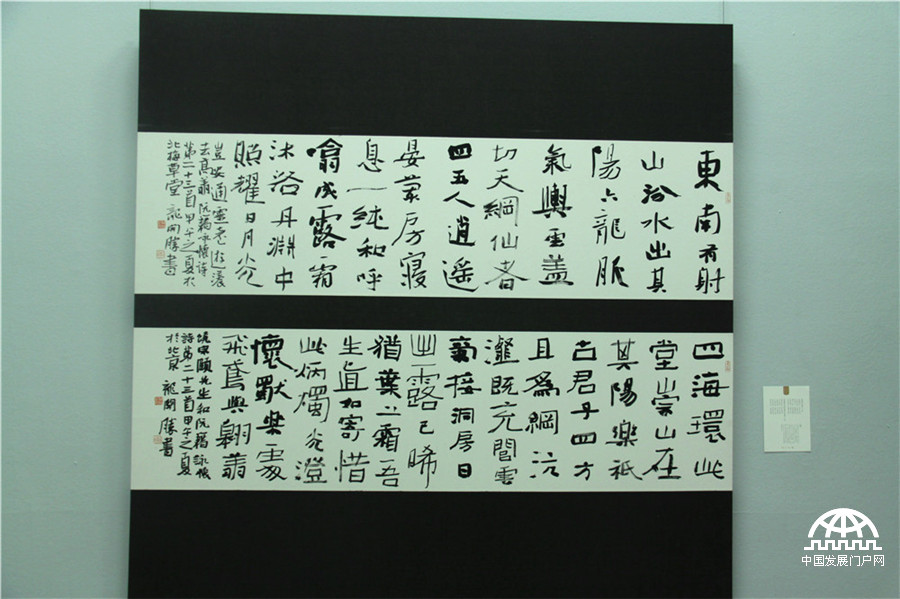 東南有射
山汾水出其
陽六龍服
氣輿雲盖
切天綱仙者
四五人逍遥
晏蘭房寢
息一純和呼
噏成露霜
沐浴丹淵中
照耀日月光
豈安通靈臺游瀁
去高翔阮籍詠懷詩
第二十三首甲午之夏於
北梅草堂 龍開勝書
四海環此
堂崇山在
其陽樂祇
古君子四方
且為綱沆
瀣既充閭雲
接洞房日
出露已晞
猶葉上霜吾
生直如寄惜
此炳燭光澄
懷獸樂處
飛鳶與翱翔
頤先生和阮籍詠懷
詩第二十三首甲午之夏
於北京 龍開勝書
中国发展门户网